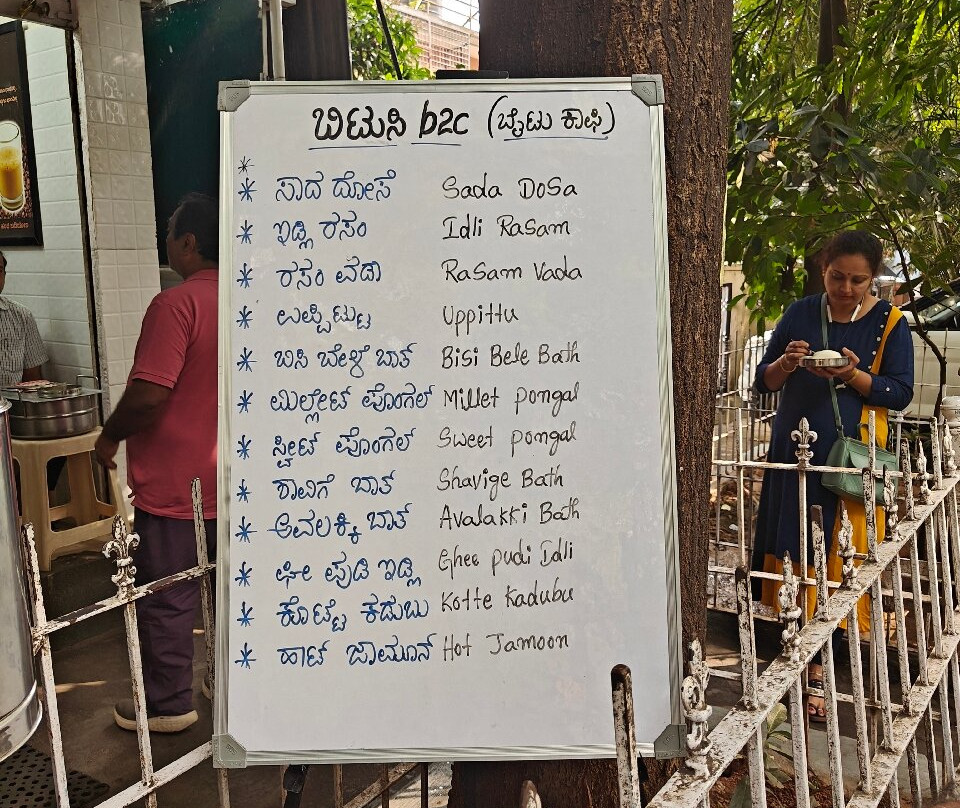 ಬಿಟುಸಿ b2c (ಬೈಟು ಕಾಫಿ)
*
* ಸಾದ ದೋಸೆ Sada Dosa
* ಇಡ್ಲಿ ರಸಂ Idli Rasam
* ರಸಂ ವಡಾ Rasam Vada
* ಉಪ್ಪಿಟ್ಟು Uppittu
* ಬಿಸಿ ಬೇಳೆ ಬಾತ್ Bisi Bele Bath
* ಮಿಲ್ಲೇಟ್ ಪೊಂಗಲ್ Millet pongal
* ಸ್ವೀಟ್ ಪೊಂಗಲ್ Sweet pongal
* ಶಾವಿಗೆ ಬಾತ್ Shavige Bath
* ಅವಲಕ್ಕಿ ಬಾತ್ Avalakki Bath
* ಘೀ ಪುಡಿ ಇಡ್ಲಿ Ghee pudi Idli
* ಕೊಟ್ಟೆ ಕಡುಬು Kotte Kadubu
* ಹಾಟ್ ಜಾಮೂನ್ Hot Jamoon